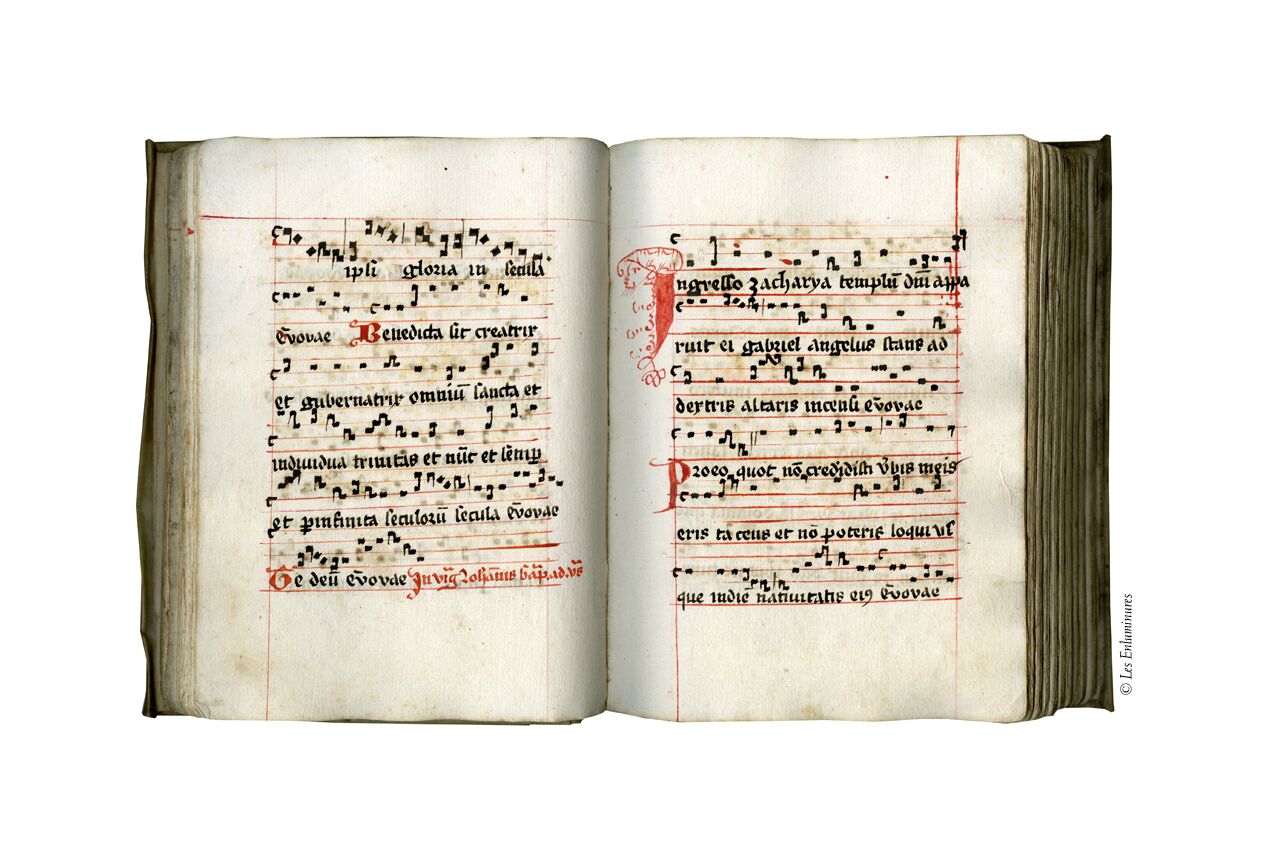 ipsi gloria in secula
Evovae Benedicta sit creatrix
et gubernatrix omniū sancta et
individua trinitas et nūc et semp
et p infinita seculorū secula Evovae
Te deū Evovae In vig Iohānis bap ad vs
Ingresso zacharya templū dm̄ appa
ruit ei gabriel angelus stans ad
dextris altaris incensi Evovae
Pro eo quot nō credidisti vbis meis
eris taceus et nō poteris loqui vs
que in diē nativitatis ei9 Evovae
© Les Enluminures